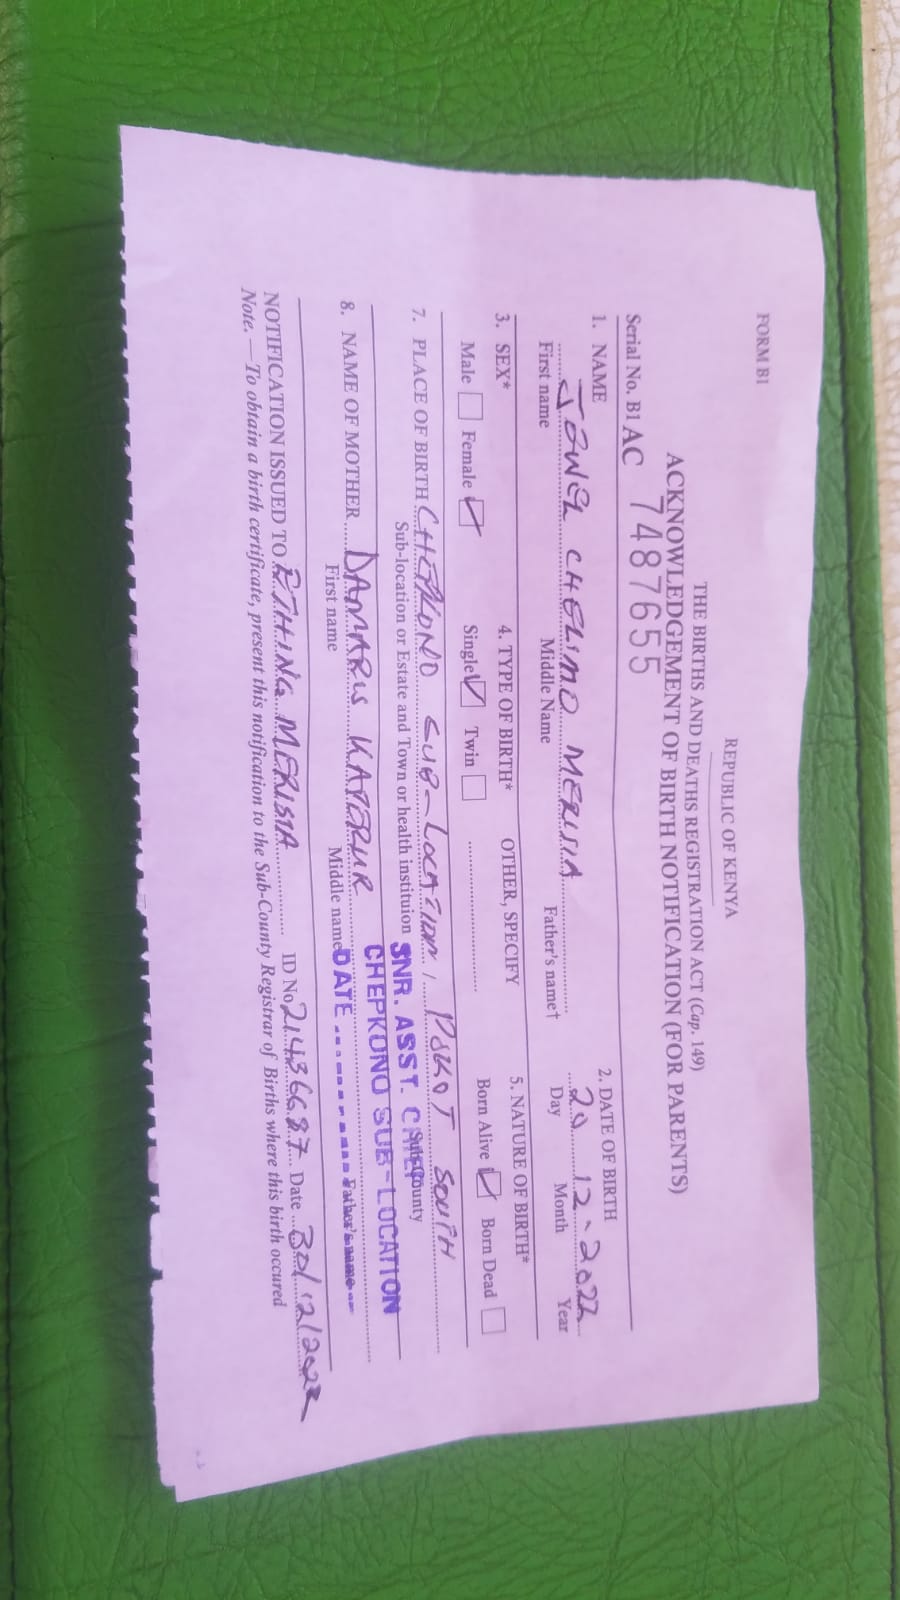 FORM B1
REPUBLIC OF KENYA
THE BIRTHS AND DEATHS REGISTRATION ACT (Cap. 149)
ACKNOWLEDGEMENT OF BIRTH NOTIFICATION (FOR PARENTS)
Serial No. B1 AC 7487655
1. NAME 2. DATE OF BIRTH
JOWEL CHELIMO MERISIA 20 12-2022
First name Middle Name Father's name† Day Month Year
3. SEX* 4. TYPE OF BIRTH* OTHER, SPECIFY 5. NATURE OF BIRTH*
Male Female Single Twin Born Alive Born Dead
7. PLACE OF BIRTH CHEPKONO SUB-LOCATION, POKOT SOUTH
Sub-location or Estate and Town or health instituion Sub-County
SNR. ASST. CHIEF
CHEPKONO SUB-LOCATION
DATE
8. NAME OF MOTHER DAMARIS KAPERUR
First name Middle name Father's name
NOTIFICATION ISSUED TO MERISIA ID No 21436687 Date 30/12/2022
Note.—To obtain a birth certificate, present this notification to the Sub-County Registrar of Births where this birth occured